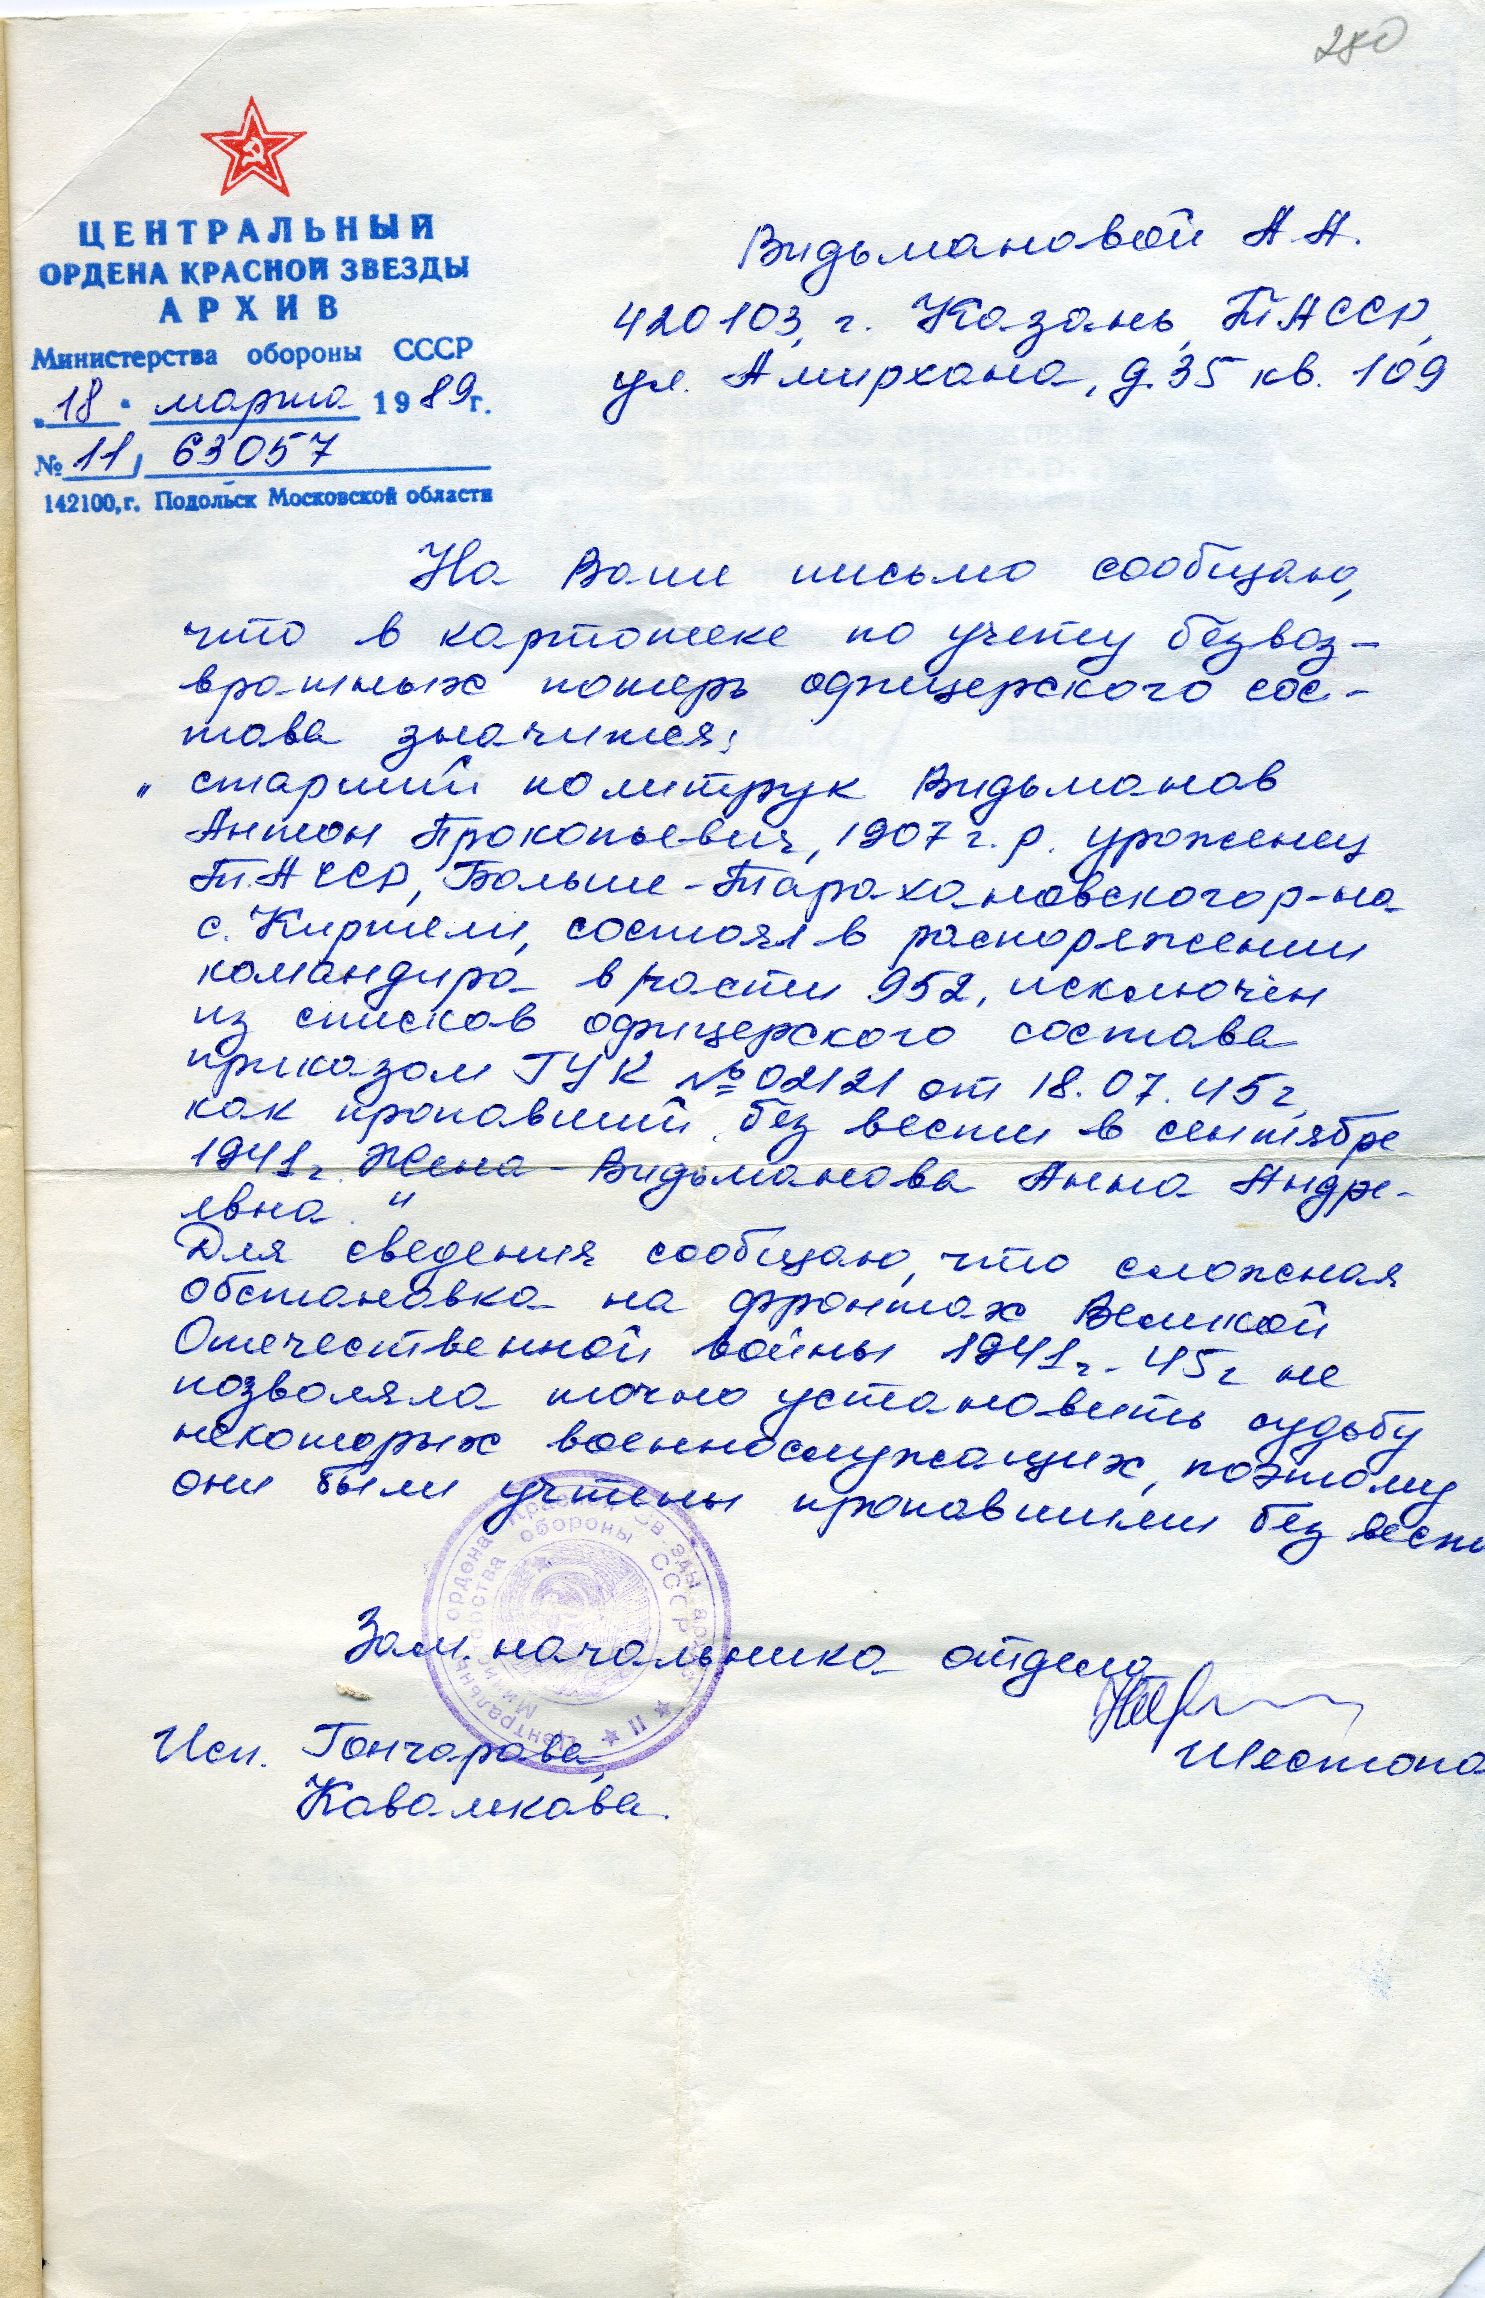 280
ЦЕНТРАЛЬНЫЙ
ОРДЕНА КРАСНОЙ ЗВЕЗДЫ
АРХИВ
Министерства обороны СССР
„18" марта 1989г.
№ 11/ 63057
142100, г. Подольск Московской области
Видьмановой А.А.
420103, г. Казань, ТАССР,
ул. Амирхана, д.35 кв. 109
На Ваше письмо сообщаю,
что в картотеке по учету безвоз-
вратных потерь офицерского сос-
тава значится:
„ старший политрук Видьманов
Антон Прокопьевич, 1907 г.р. уроженец
ТАССР, Больше-Тархановского р-на
с. Киртели, состоял в распоряжении
командира в/части 952, исключён
из списков офицерского состава
приказом ГУК №02121 от 18.07.45г.
как пропавший без вести в сентябре
1941г. Жена - Видьманова Анна Андре-
евна."
Для сведения сообщаю, что сложная
обстановка на фронтах Великой
Отечественной войны 1941г-45г не
позволяла точно установить судьбу
некоторых военнослужащих, поэтому
они были учтены пропавшими без вести
Центральный ордена Красной Звезды архив
Министерства обороны СССР
★ II ★
Зам. начальника отдела
Шестопа
Исп. Гончарова,
Ковалкова.